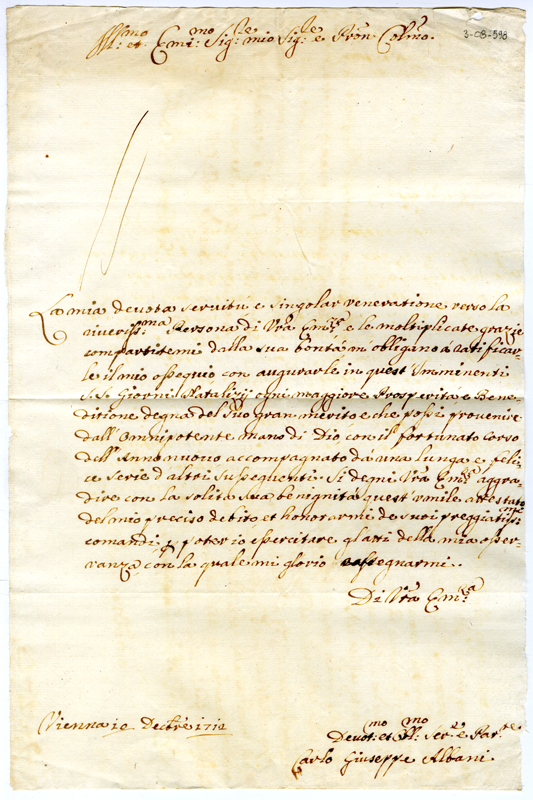 3-08-598
Ill:mo et Emi:mo Sig:re mio Sig:re e Pron Colmo.
La mia deuota seruitù e singolar veneratione verso la
riueriss:ma Persona di Vra Em:za e le moltiplicate grazie
compartitemi dalla sua bontà m'obligano à ratificar
le il mio ossequio con augurarle in quest'imminenti
S.S. Giorni Natalizij ogni maggiore Prosperità e Bene
ditione degna del suo gran merito e che possi prouenire
dall'Omnipotente mano di Dio con il fortunato corso
dell'Anno nuouo accompagnato dà una lunga e feli
ce serie d'altri sussequenti. Si degni Vra Em:za aggra
dire con la solita sua benignità quest'vmile attestato
del mio preciso debito et honorarmi de suoi preggiatiss:mi
comandi, p poterio essercitare gl'atti della mia osser
vanza, con la quale mi glorio rassegnarmi.
Di Vra Em:za
Vienna 10 Decbre 1712
Deuot:mo et Obl:mo Ser:re e Par:te
Carlo Giuseppe Albani